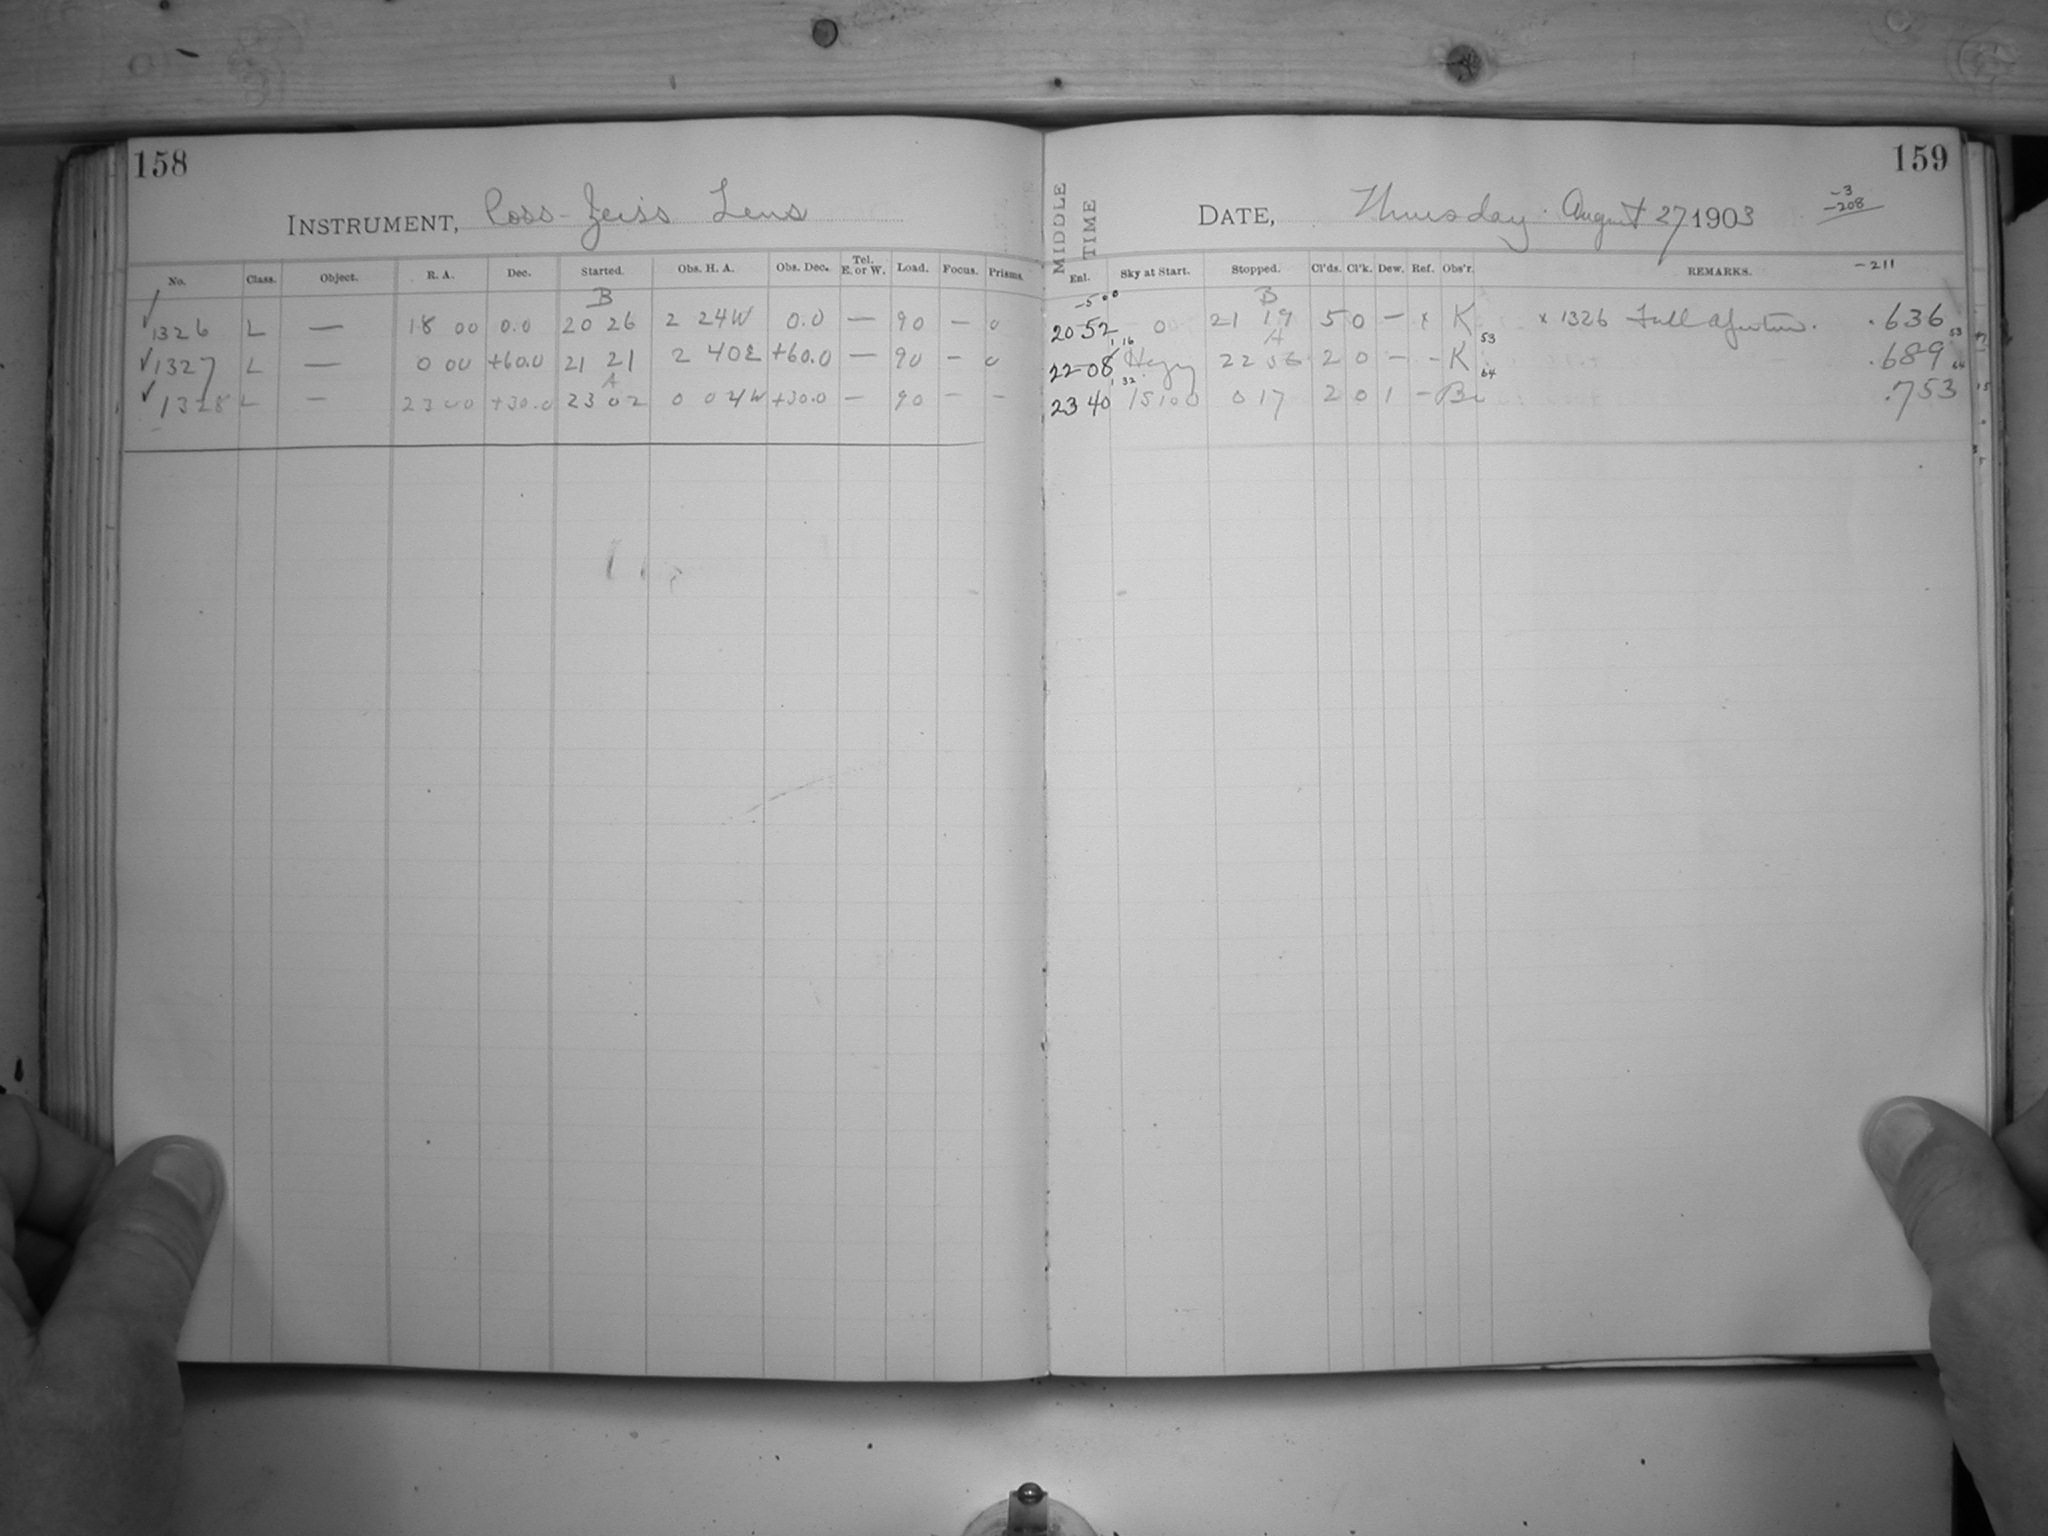 158
INSTRUMENT, Ross-Zeiss Lens
No. Class. Object. R. A. Dec. Started. Obs. H. A. Obs. Dec. Tel. E. or W. Load. Focus. Prisms.
B
✓1326 L — 18 00 0.0 20 26 2 24W 0.0 — 90 — 0
✓1327 L — 0 00 +60.0 21 21 2 40E +60.0 — 90 — 0
A
✓1328 L — 23 00 +30.0 23 02 0 04W +30.0 — 90 — —
159
MIDDLE TIME
DATE, Thursday August 27 1903
-3
-208
-211
Enl. Sky at Start. Stopped. Cl'ds. Cl'k. Dew. Ref. Obs'r. REMARKS.
-5 00 B
20 52 0 21 19 5 0 — x K x 1326 Full Aperture. .636
1 16 A 53 53
22 08 Hazy 22 56 2 0 — — K .689
1 32 64 64
23 40 15100 0 17 2 0 1 — .753